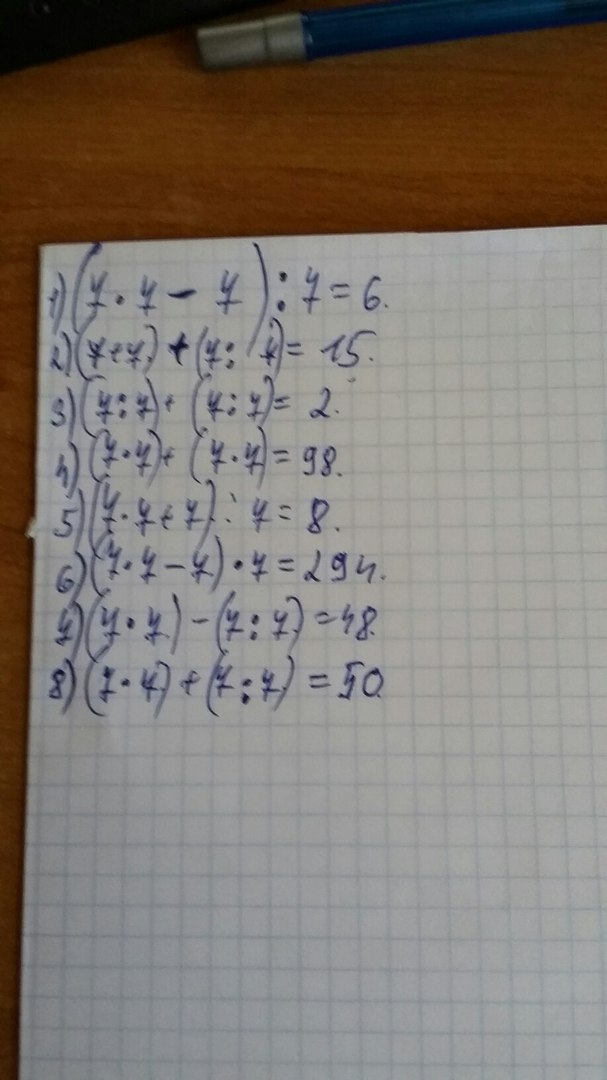 1) (7 · 7 - 7) : 7 = 6.
2) (7+7) + (7 : 7) = 15.
3) (7 : 7) + (7 : 7) = 2.
4) (7 · 7) + (7 · 7) = 98.
5) (7 · 7 + 7) : 7 = 8.
6) (7 · 7 - 7) · 7 = 294.
7) (7 · 7) - (7 : 7) = 48.
8) (7 · 7) + (7 : 7) = 50